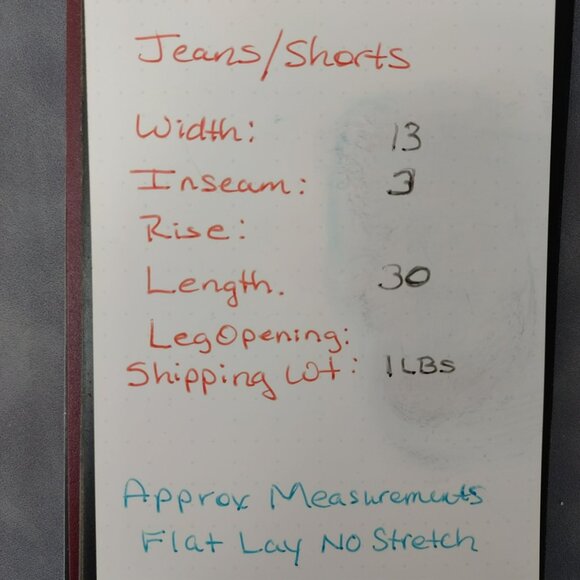 Jeans/Shorts
Width: 13
Inseam: 3
Rise:
Length. 30
Leg Opening:
Shipping Wt: 1 LBS
Approx Measurements
Flat Lay No Stretch